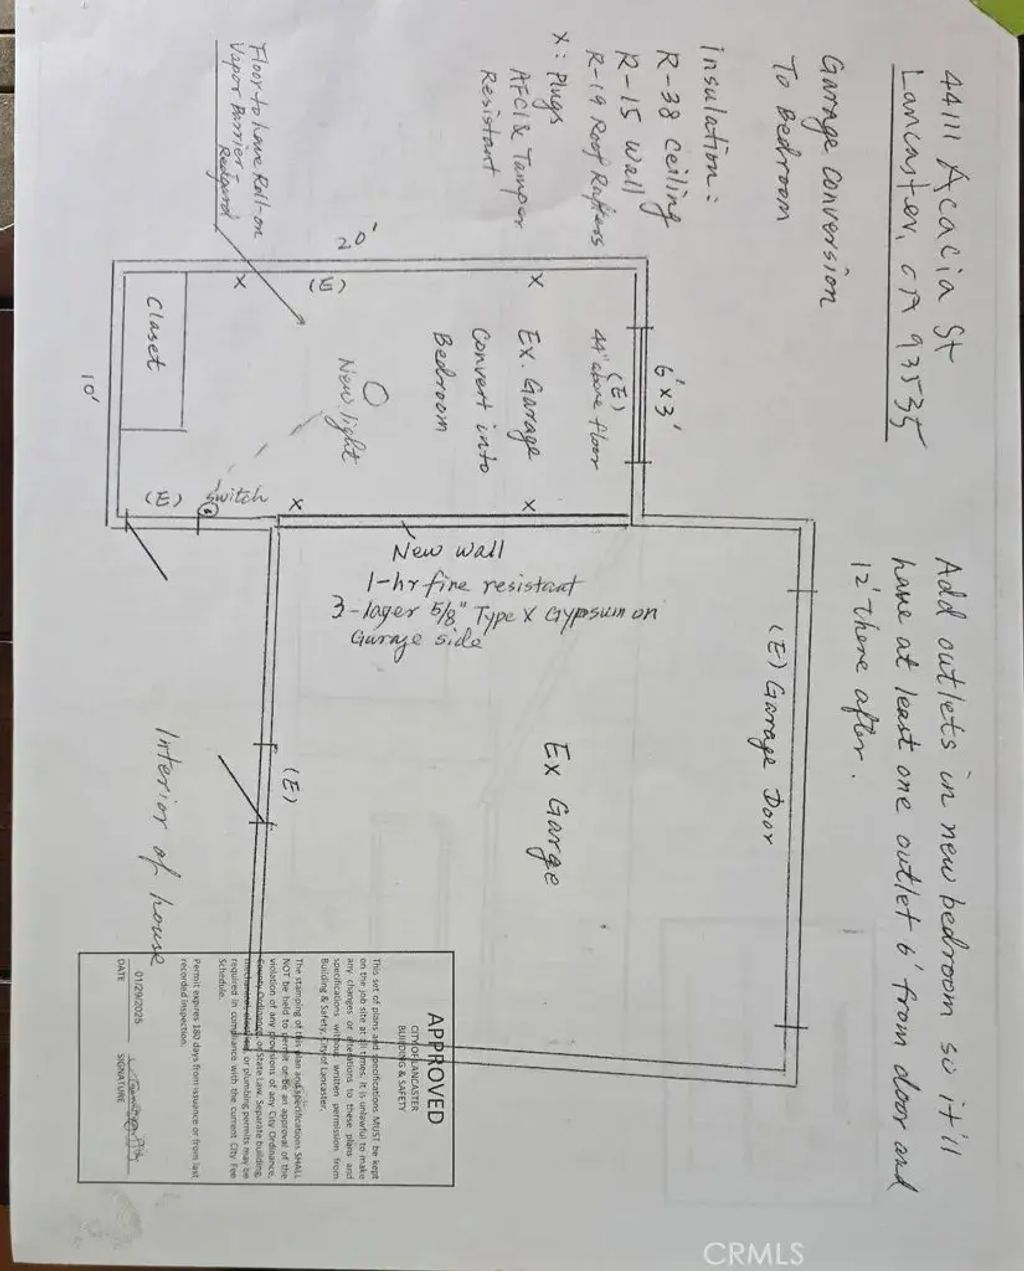 44111 Acacia St
Lancaster, CA 93535
Garage Conversion
To Bedroom
insulation:
R-38 Ceiling
R-15 Wall
R-19 Roof Rafters
X: Plugs
AFCI & Tamper
Resistant
Floor to have Roll-on
Vapor Barrier -
Redgard
Add outlets in new bedroom so it'll
have at least one outlet 6' from door and
12' there after.
20'
10'
6'x3'
(E)
44" above floor
Ex. Garage
Convert into
Bedroom
(E)
New light
Closet
(E)
Switch
X
X
X
X
New wall
1-hr fire resistant
3-lager 5/8" Type X Gypsum on
Garage side
(E) Garage Door
Ex Garge
(E)
Interior of house
APPROVED
CITY OF LANCASTER
BUILDING & SAFETY
This set of plans and specifications MUST be kept
on the job site at all times. It is unlawful to make
any changes or alterations to these plans and
specifications without written permission from
Building & Safety, City of Lancaster.
The stamping of this plan and specifications SHALL
NOT be held to permit or be an approval of the
violation of any provisions of any City Ordinance,
County Ordinance, or State Law. Separate building,
mechanical, electrical, or plumbing permits may be
required in compliance with the current City Fee
Schedule.
Permit expires 180 days from issuance or from last
recorded inspection.
01/29/2025
DATE
SIGNATURE
CRMLS